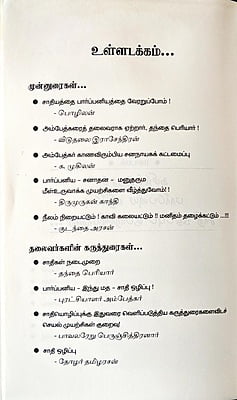 உள்ளடக்கம்...
முன்னுரைகள்...
● சாதியத்தை பார்ப்பனியத்தை வேரறுப்போம் !
- பொழிலன்
● அம்பேத்கரைத் தலைவராக ஏற்றார், தந்தை பெரியார் !
- விடுதலை இராசேந்திரன்
● அம்பேத்கர் காணவிரும்பிய சனநாயகக் கட்டமைப்பு
- சு. முகிலன்
● பார்ப்பனிய - சனாதன - மனுதரும
மீள்உருவாக்க முயற்சிகளை வீழ்த்துவோம் !
- திருமுருகன் காந்தி
● நீலம் நிறையட்டும் ! காவி கலையட்டும் ! மனிதம் தழைக்கட்டும் ...!!
- குடந்தை அரசன்
தலைவர்களின் கருத்துரைகள்...
● சாதிகள் நடைமுறை
- தந்தை பெரியார்
● பார்ப்பனிய - இந்து மத - சாதி ஒழிப்பு !
- புரட்சியாளர் அம்பேத்கர்
● சாதியொழிப்புக்கு இதுவரை வெளிப்படுத்திய கருத்துரைகளைவிடச்
செயல் முயற்சிகள் குறைவு!
- பாவலரேறு பெருஞ்சித்திரனார்
● சாதி ஒழிப்பு
- தோழர் தமிழரசன்